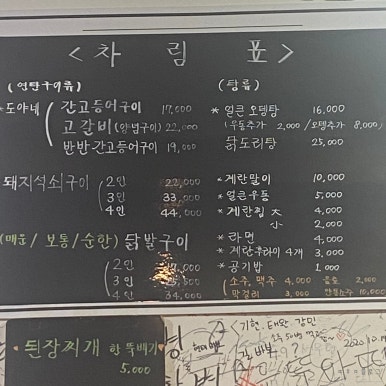 < 차 림 표 >
(연탄구이류)
*도야네
간고등어구이 17,000
고갈비(양념구이) 22,000
반반간고등어구이 19,000
돼지석쇠구이 2인 22,000
3인 33,000
4인 44,000
(매운/보통/순한) 닭발구이
2인
3인
4인 34,000
(탕류)
* 얼큰 오뎅탕 16,000
(우동추가 2,000 / 오뎅추가 8,000)
닭도리탕 25,000
* 계란말이 10,000
* 얼큰우동 5,000
* 계란찜 大 4,000
小 2,000
* 라면 4,000
* 계란후라이 4개 3,000
* 공기밥 1,000
소주, 맥주 4,000 음료 2,000
막걸리 3,000 안동소주 10,000
*된장찌개 한 뚝배기
5,000
기현, 태완 강민